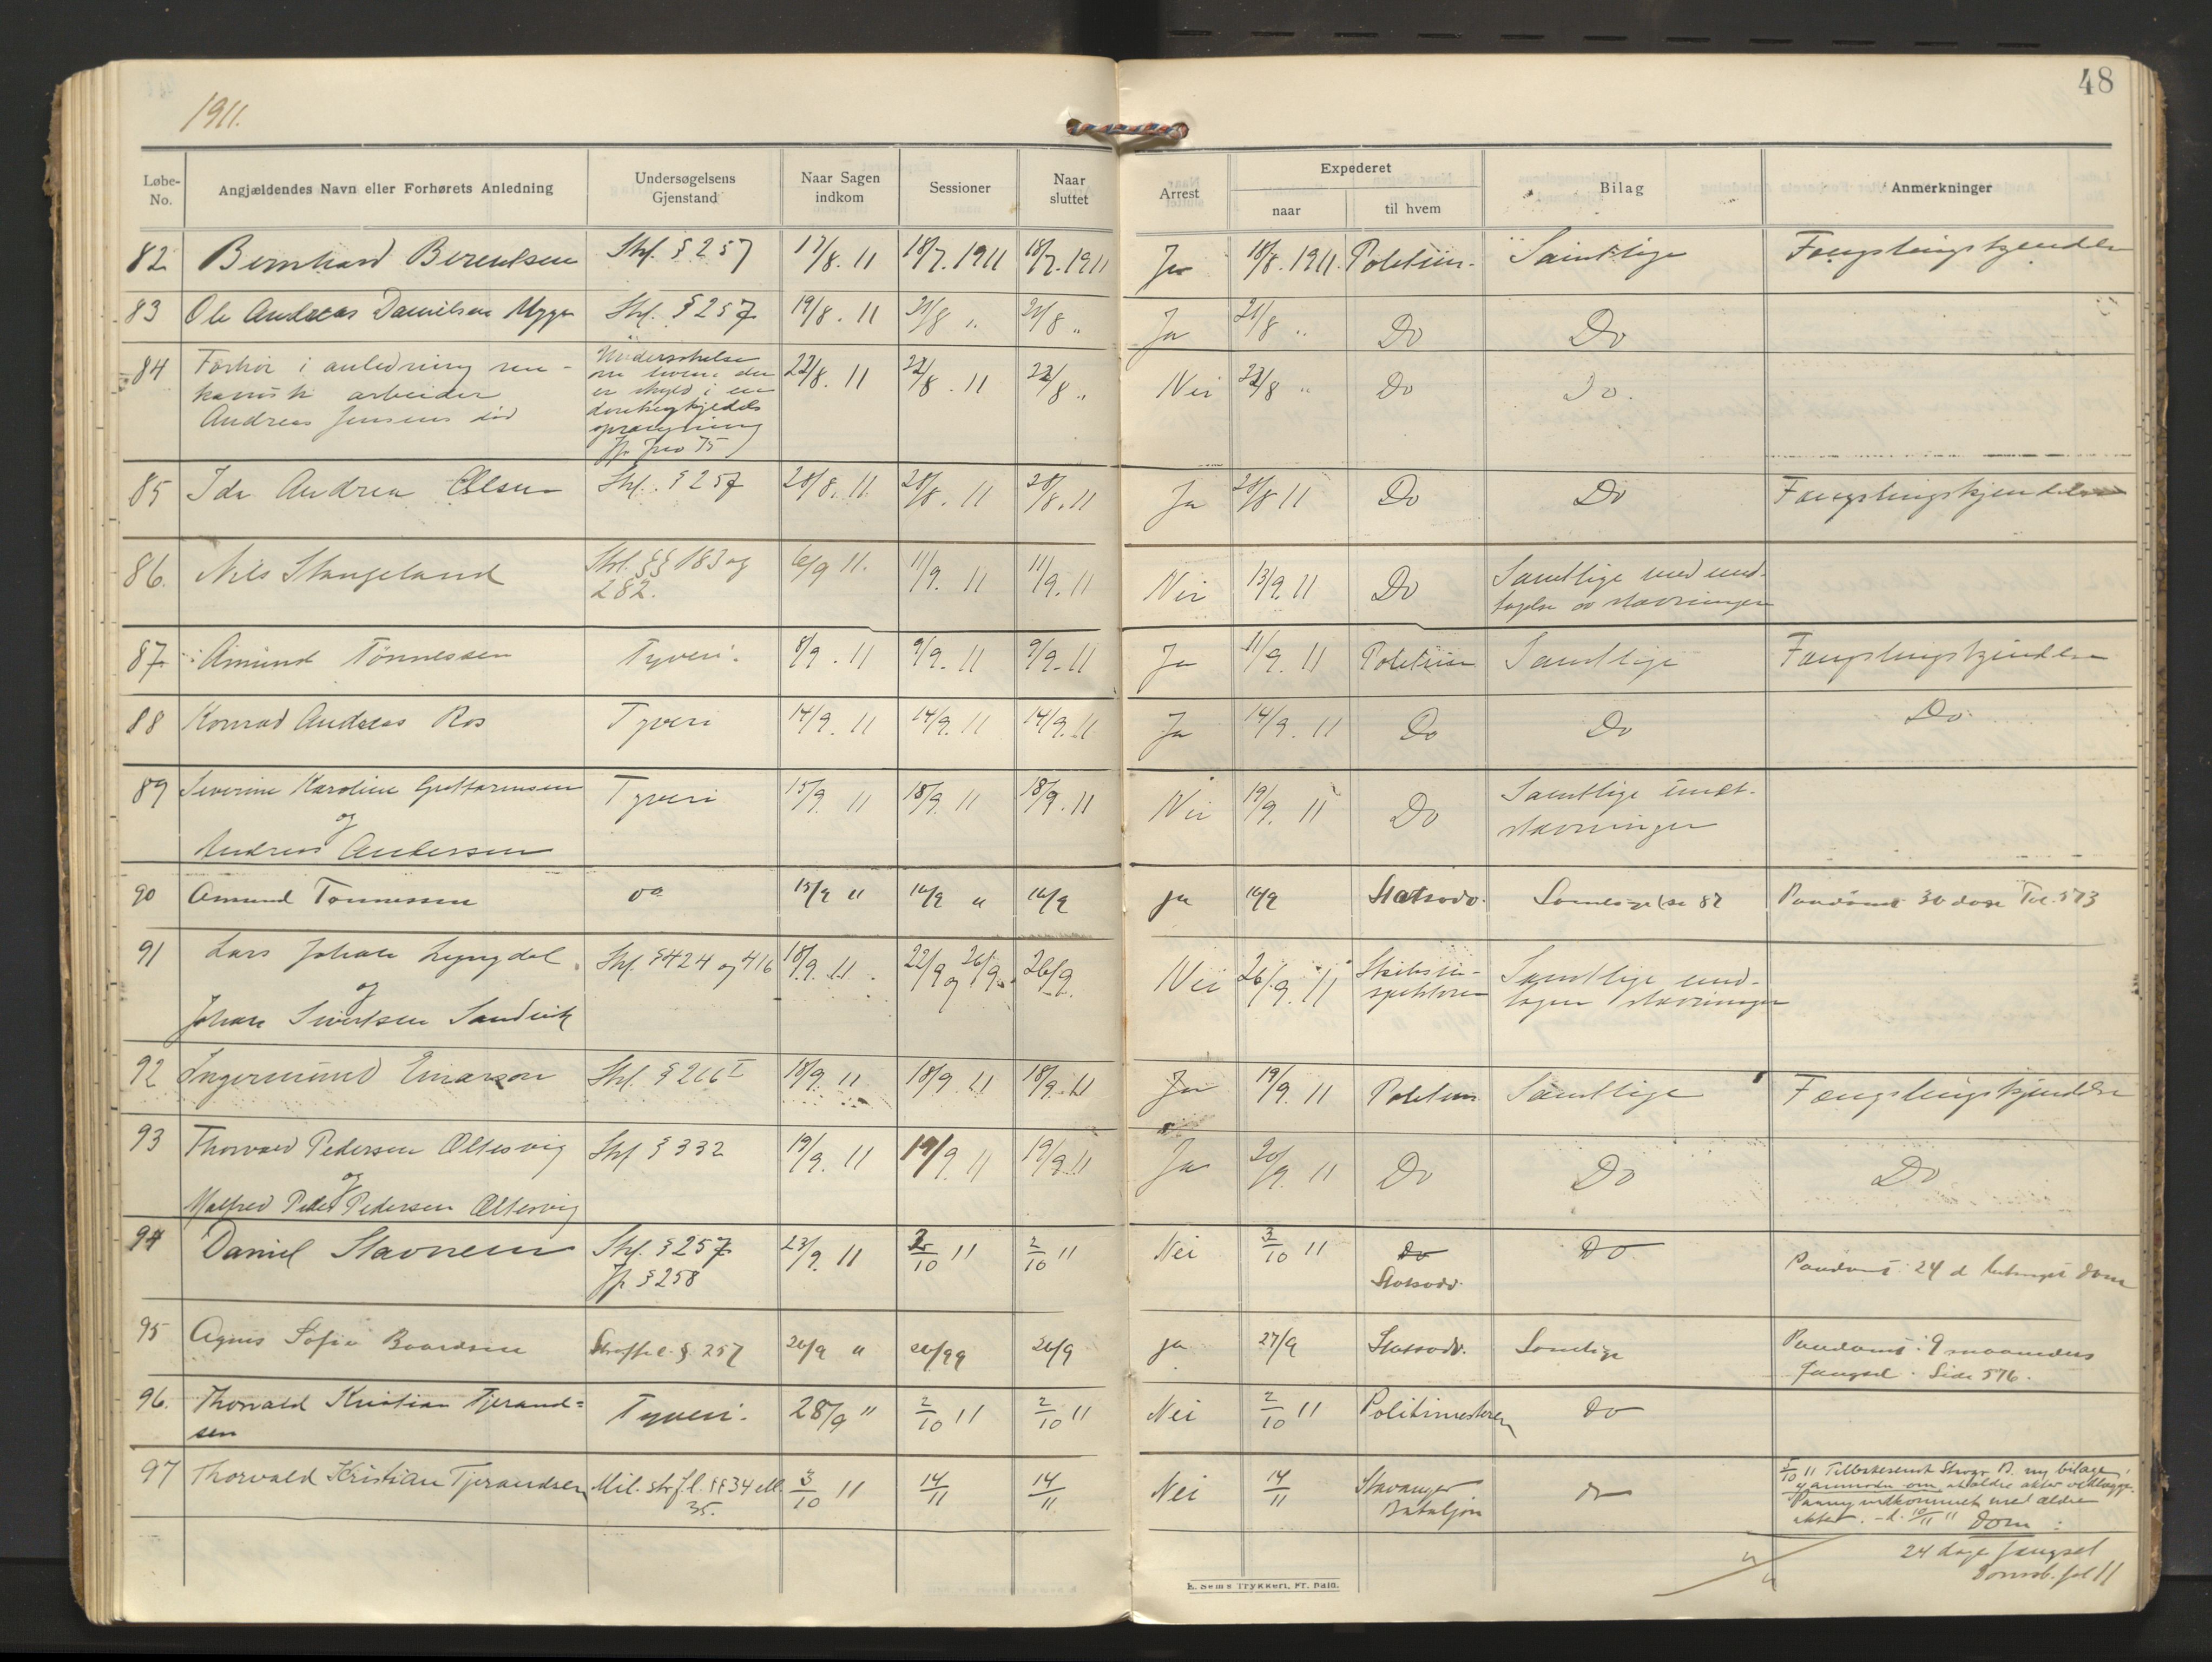 1911.
48
Løbe-No.
Angjældendes Navn eller Forhørets Anledning
Undersøgelsens Gjenstand
Naar Sagen indkom
Sessioner
Naar sluttet
Arrest
Expederet
naar
til hvem
Bilag
Anmerkninger
82 Bernhard Berentsen Strl. § 257 17/8. 11 18/7. 1911 18/7. 1911 Ja 18/8. 1911. Politiet. Samtlige Fængslingskjendelse
83 Ole Andreas Danielsen Strl. § 257 19/8. 11 21/8 " 21/8 " Ja 21/8 " Do Do
84 Forhør i anledning me- 22/8. 11 22/8. 11 22/8 " Nei 22/8 " Do Do.
kanisk arbeider
Andreas Jensens død
Undersøkelse
om hvem der
er skyld i en
oprængning
85 Ida Andrea Olsen Strl. § 257 28/8. 11. 28/8. 11 28/8. 11 Ja 28/8 11 Do Do Fængslingskjendelse
86. Nils Stangeland Strl. §§ 183 og 6/9 11. 11/9. 11 11/9. 11 Nei 13/9. 11 Do Samtlige med und-
282. tagelse av stævningen
87 Amund Tönnessen Tyveri. 8/9. 11 9/9. 11 9/9. 11 Ja 11/9. 11 Politiet Samtlige Fængslingskjendelse
88 Konrad Andreas Ros Tyveri 14/9. 11 14/9. 11 14/9. 11 Ja 14/9. 11 Do Do Do
89 Severine Karoline Guttormsen Tyveri 15/9 11 18/9 11 18/9. 11 Nei 19/9. 11 Do Samtlige undt.
og stævninger
Andreas Andersen
90 Amund Tønnessen 15/9 " 16/9 " 16/9 ja 16/9 Statsadv. 87 Paadømt 30 dage 573
91 Lars Johan Lyngdal Strl. § 424 og 416 18/9. 11. 22/9 og 26/9. 26/9. Nei 26/9. 11 Skibsin- Samtlige und-
og spektøren tagen stævninger
Johan Sivertsen Sandvik
92 Ingermund Einarson Strl. § 266 I 18/9. 11 18/9. 11 18/9. 11 Ja 19/9. 11 Politiet Samtlige Fængslingskjendelse
93 Thorvald Pedersen Oltesvig Strl § 332 19/9. 11 19/9. 11 19/9. 11 Ja 20/9. 11 Do Do Do
og
Malfred Peder Pedersen Oltesvig
94 Daniel Stavnem Strl. § 257 23/9. 11 2/10 11 2/10 11 Nei 3/10 11 Do Do
jfr. § 258 Statsadv. Paadømt: 24 d. betinget dom
95 Agnes Sofie Baardsen Straffel. § 257 26/9 " 26/9 ja 27/9 Statsadv. Samtlige Paadømt: 9 maaneders
fængsel. Side 576.
96. Thorvald Kristian Tjerand= Tyveri. 28/9 " 2/10 11 2/10 11 Nei 2/10 11 Politimesteren Do
sen
97 Thorvald Kristian Tjerandsen Mil. str.f.l. §§ 34 ell. 3/10 11 14/11 14/11 Nei 14/11 Stavanger Do
35. Bataljon
5/10 11 Tilbakesendt
Paany indkommet med ældre
akter. - d. 10/11 11 Dom:
24 dage fængsel
Domsb. fol 11
E. Sems Trykkeri, Fr. hald.